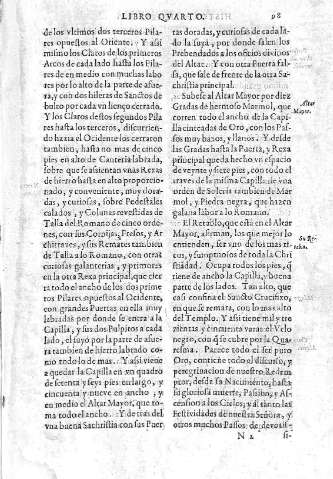 LIBRO QVARTO.
98
de los vltimos dos terceros Pila-
res opuestos al Oriente. Y assi
mismo los Claros de los primeros
Arcos de cada lado hasta los Pila-
res de en medio con muchas labo
res por lo alto de la parte de afue-
ra, y con dos hileras de Sanctos de
bulto por cada vn liẽço cerrado.
Y los Claros destos segundos Pila
res hasta los terceros, discurrien-
do hazia el Occidente los cerraron
tambien, hasta no mas de cinco
pies en alto de Canteria labrada,
sobre que se assientan vnas Rexas
de hierro hasta en alto proporcio-
nado, y conveniente, muy dora-
das, y curiosas, sobre Pedestales
colados, y Colunas revestidas de
Talla del Romano de cinco orde-
nes, con sus Cornijas, Frisos, y Ar
chitraves, y sus Remates tambien
de Talla a lo Romano, con otras
curiosas galanterias, y primores
en la otra Rexa principal, que cier
ra todo el ancho de los dos prime
ros Pilares opuestos al Occidente,
con grandes Puertas en ella muy
labradas por donde se entra a la
Capilla, y sus dos Pulpitos a cada
lado, el suyo por la parte de afue-
ra tambien de hierro labrado co-
mo todo lo de mas. Y assi viene
a quedar la Capilla en vn quadro
de setenta y seys pies en largo, y
cincuenta y nueve en ancho, y
en medio el Altar Mayor, que to-
ma todo el ancho. Y detras del
vna buena Sachristia con sus Puer
tas doradas, y curiosas de cada la-
do la suya, por donde salen los
Prebendados a los oficios divinos
del Altar. Y con otra Puerta fal-
sa, que sale de frente de la otra Sa-
christia principal.
Subese al Altar Mayor por diez
Gradas de hermoso Marmol, que
corren todo el ancho de la Capi-
lla cinteadas de Oro, con los Pas-
sos muy banos, y llanos. Y desde
las Gradas hasta la Puerta, y Rexa
principal queda hecho vn espacio
de veynte y siete pies, con todo el
traves de la misma Capilla de vna
orden de Soleria tambien de Mar
mol, y Piedra negra, que hazen
galana labor a lo Romano.
Altar
Mayor.
El Retablo, que està en el Altar
Mayor, afirman, los que mejor lo
entienden, ser vno de los mas ri-
cos, y sumptuosos de toda la Chri
stiãdad. Ocupa todos los pies, q̃
tiene de ancho la Capilla, y buena
parte de los lados. Tan alto, que
casi confina el Sancto Crucifixo,
en que se remata, con lo mas alto
del Templo. Y assi tiene mil y tre
zientas y cincuenta varas el Velo
negro, con q̃ se cubre por la Qua-
resma. Parece todo el ser puro
Oro, contiene todo el discurso, y
peregrinacion de nuestro Redem
ptor, desde su Nacimiento, hasta
su gloriosa muerte, Passion, y As-
cension a los Cielos; y assi tanto las
Festividades de nuestra Señora, y
otros muchos Passos de devoti-
N 2
si-